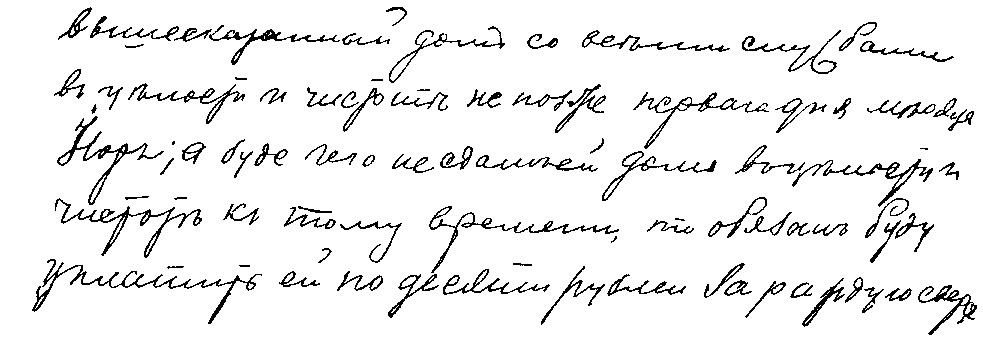 вышесказанный домъ со всеми службами
въ целости и чистотѣ не позже перваго дня месяца
Iюрь; а буде чего не сдамъ ей домъ въ целости и
чистотѣ къ тому времени, то обязанъ буду
уплатить ей по десяти рублей за каждую сверх